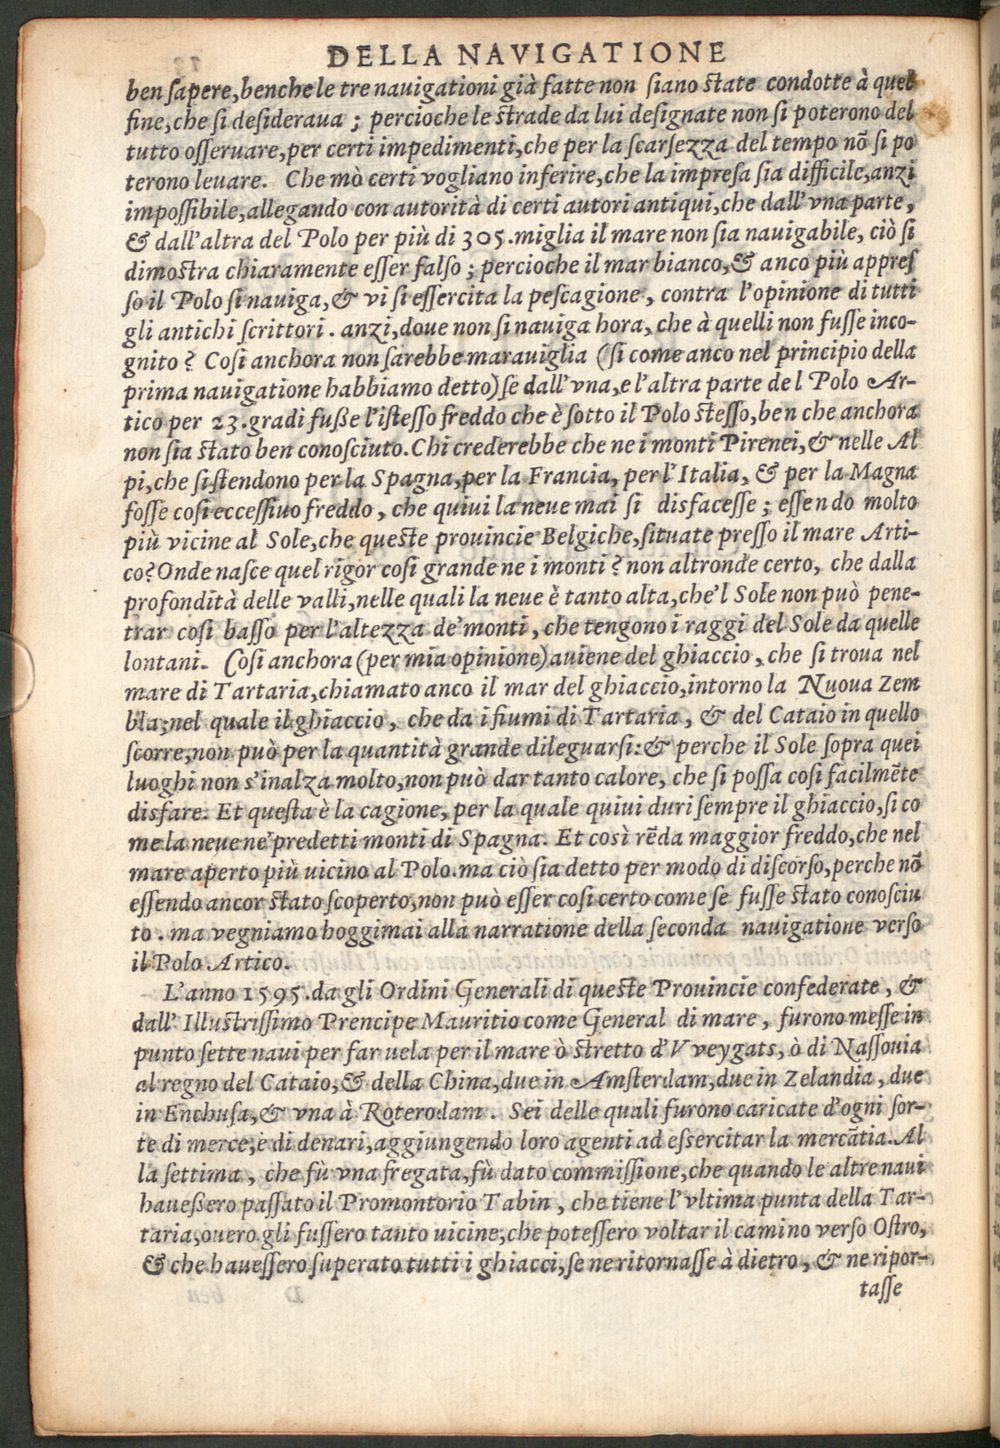 DELLA NAVIGATIONE
ben sapere, benche le tre nauigationi già fatte non siano state condotte à quel
fine, che si desideraua; percioche le strade da lui designate non si poterono del
tutto osseruare, per certi impedimenti, che per la scarsezza del tempo nõ si po
terono leuare. Che mò certi vogliano inferire, che la impresa sia difficile, anzi
impossibile, allegando con autorità di certi autori antiqui, che dall'vna parte,
& dall'altra del Polo per più di 305. miglia il mare non sia nauigabile, ciò si
dimostra chiaramente esser falso; percioche il mar bianco, & anco più appres
so il Polo si nauiga, & vi si essercita la pescagione, contra l'opinione di tutti
gli antichi scrittori. anzi, doue non si nauiga hora, che à quelli non fusse inco-
gnito? Cosi anchora non sarebbe marauiglia (si come anco nel principio della
prima nauigatione habbiamo detto) se dall'vna, e l'altra parte del Polo Ar-
tico per 23. gradi fuße l'istesso freddo che è sotto il Polo stesso, ben che anchora
non sia stato ben conosciuto. Chi crederebbe che ne i monti Pirenei, & nelle Al
pi, che si stendono per la Spagna, per la Francia, per l'Italia, & per la Magna
fosse cosi eccessiuo freddo, che quiui la neue mai si disfacesse; essendo molto
più vicine al Sole, che queste prouincie Belgiche, situate presso il mare Arti-
co? Onde nasce quel rigor cosi grande ne i monti? non altronde certo, che dalla
profondità delle valli, nelle quali la neue è tanto alta, che'l Sole non può pene-
trar cosi basso per l'altezza de' monti, che tengono i raggi del Sole da quelle
lontani. Cosi anchora (per mia opinione) auiene del ghiaccio, che si troua nel
mare di Tartaria, chiamato anco il mar del ghiaccio, intorno la Nuoua Zem
bla; nel quale il ghiaccio, che da i fiumi di Tartaria, & del Cataio in quello
scorre, non può per la quantità grande dileguarsi: & perche il Sole sopra quei
luoghi non s'inalza molto, non può dar tanto calore, che si possa cosi facilmẽte
disfare. Et questa è la cagione, per la quale quiui duri sempre il ghiaccio, si co
me la neue ne' predetti monti di Spagna. Et così rẽda maggior freddo, che nel
mare aperto più uicino al Polo. ma ciò sia detto per modo di discorso, perche nõ
essendo ancor stato scoperto, non può esser cosi certo come se fusse stato conosciu
to. ma vegniamo hoggimai alla narratione della seconda nauigatione verso
il Polo Artico.
L'anno 1595. da gli Ordini Generali di queste Prouincie confederate, &
dall' Illustrissimo Prencipe Mauritio come General di mare, furono messe in
punto sette naui per far uela per il mare ò stretto d'Vveygats, ò di Nassouia
al regno del Cataio, & della China, due in Amsterdam, due in Zelandia, due
in Enchusa, & vna à Roterodam. Sei delle quali furono caricate d'ogni sor-
te di merce, e di denari, aggiungendo loro agenti ad essercitar la mercãtia. Al
la settima, che fù vna fregata, fù dato commissione, che quando le altre naui
haueßero passato il Promontorio Tabin, che tiene l'vltima punta della Tar-
taria, ouero gli fussero tanto uicine, che potessero voltar il camino verso Ostro,
& che hauessero superato tutti i ghiacci, se ne ritornasse à dietro, & ne ripor-
tasse